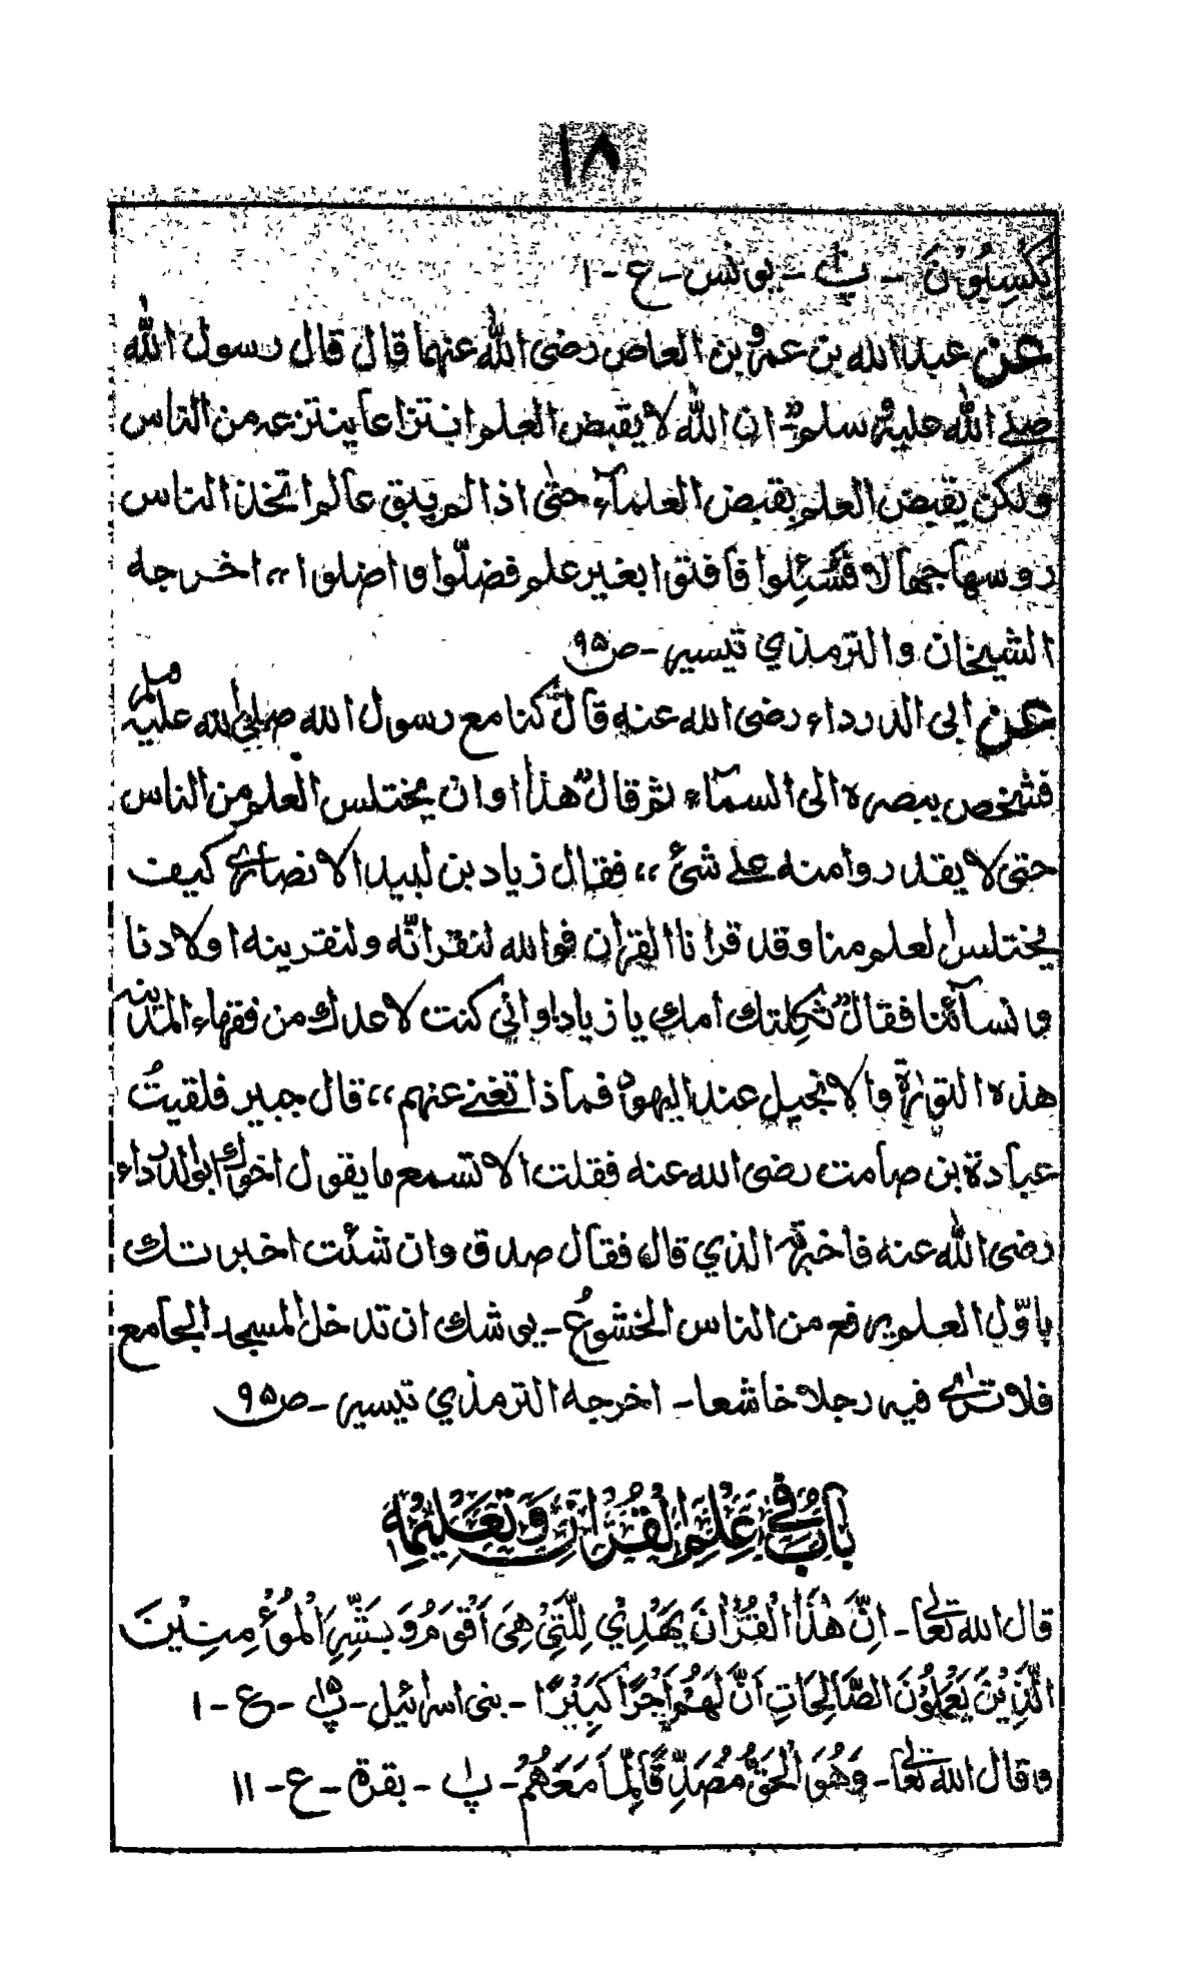 ١٨
يَكْسِبُوْنَ - پ١١ - يونس - ع - ١
عن عبد الله بن عمرو بن العاص رضى الله عنهما قال قال رسول الله
صلى الله عليه وسلم ان الله لا يقبض العلم انتزاعا ينتزعه من الناس
ولكن يقبض العلم بقبض العلماء حتى اذا لم يبق عالم اتخذ الناس
روسها جهالا فَسُئِلوا فافتوا بغير علم فضلّوا واضلوا،، اخرجه
الشيخان والترمذي تيسير - ص ٩٥
عن ابى الدرداء رضى الله عنه قال كنا مع رسول الله صلى الله عليه وسلم
فشخص ببصره الى السماء ثم قال هذا اوان يختلس العلم من الناس
حتى لا يقدروا منه على شئ،، فقال زياد بن لبيد الانصارى كيف
يختلس العلم منا وقد قرانا القرآن فوالله لنقرانّه ولنقرينه اولادنا
ونسآئنا فقال ثكِلتك امك يا زياد اوانى كنت لاعدك من فقهاء المدينه
هذه التوراة والانجيل عند اليهود فماذا تغنى عنهم،، قال جبير فلقيتُ
عبادة بن صامت رضى الله عنه فقلت الا تسمع ما يقول اخوك ابوالدرداء
رضى الله عنه فاخبرته الذي قال فقال صدق وان شئت اخبرتك
باوّل العلم يرفع من الناس الخشوعُ - يوشك ان تدخل المسجد الجامع
فلا ترى فيه رجلا خاشعا - اخرجه الترمذي تيسير - ص ٩٥
بَابٌ فِي عِلْمِ الْقُرْاٰنِ وَتَعْلِيْمِهِ
قال الله تعالى - اِنَّ هٰذَا الْقُرْاٰنَ يَهْدِيْ لِلَّتِيْ هِىَ اَقْوَمُ وَ يَبَشِّرُ الْمُؤْمِنِيْنَ
الَّذِيْنَ يَعْمَلُوْنَ الصَّالِحَاتِ اَنَّ لَهُمْ اَجْرًا كَبِيْرًا - بنى اسرائيل - پ١٥ - ع - ١
وقال الله تعالى - وَهُوَ الْحَقُّ مُصَدِّقًا لِّمَا مَعَهُمْ - پ١ - بقرة - ع - ١١